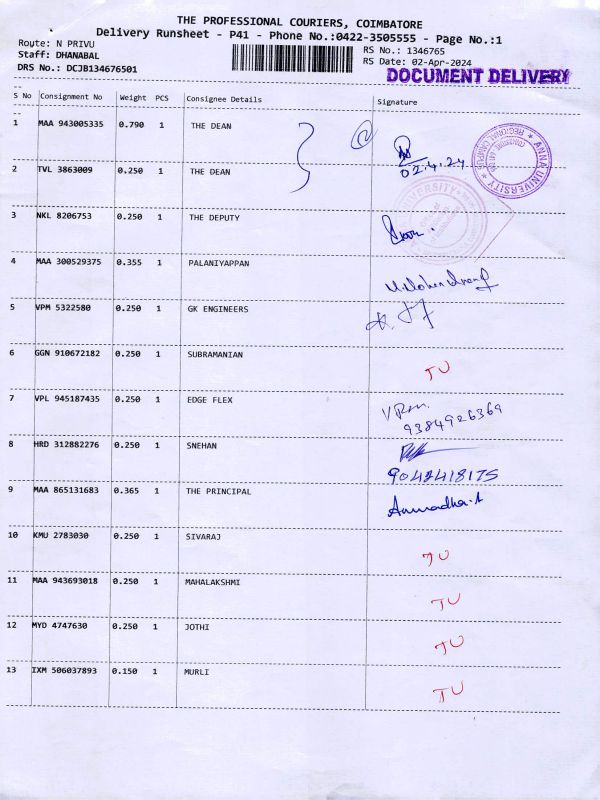 THE PROFESSIONAL COURIERS, COIMBATORE
Delivery Runsheet - P41 - Phone No.:0422-3505555 - Page No.:1
Route: N PRIVU
RS No.: 1346765
Staff: DHANABAL
RS Date: 02-Apr-2024
DRS No.: DCJB134676501
DOCUMENT DELIVERY
S No Consignment No Weight PCS Consignee Details Signature
1 MAA 943005335 0.790 1 THE DEAN
02.4.24
ANNA UNIVERSITY
REGIONAL CAMPUS
2 TVL 3863009 0.250 1 THE DEAN
3 NKL 8206753 0.250 1 THE DEPUTY
4 MAA 300529375 0.355 1 PALANIYAPPAN
5 VPM 5322580 0.250 1 GK ENGINEERS
6 GGN 910672182 0.250 1 SUBRAMANIAN TU
7 VPL 945187435 0.250 1 EDGE FLEX
9384926369
8 HRD 312882276 0.250 1 SNEHAN
9042418175
9 MAA 865131683 0.365 1 THE PRINCIPAL Anuradha.A
10 KMU 2783030 0.250 1 SIVARAJ TU
11 MAA 943693018 0.250 1 MAHALAKSHMI TU
12 MYD 4747630 0.250 1 JOTHI TU
13 IXM 506037893 0.150 1 MURLI TU